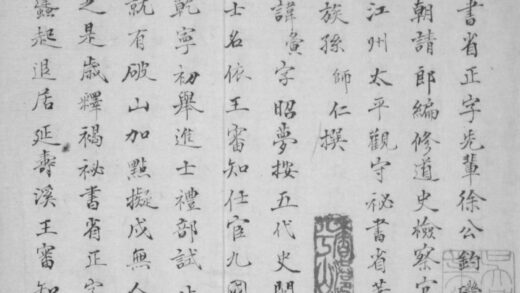 書省正字先輩徐公釣磯
朝請郎編修道史檢察官
江州太平觀守祕書省著
族孫師仁撰
諱寅字昭夢按五代史閩
士名依王審知任官九國
乾寧初舉進士禮部試止
就有破山加點擬戍無人
之是歲釋褐祕書省正字
蠭起退居延壽溪王審知